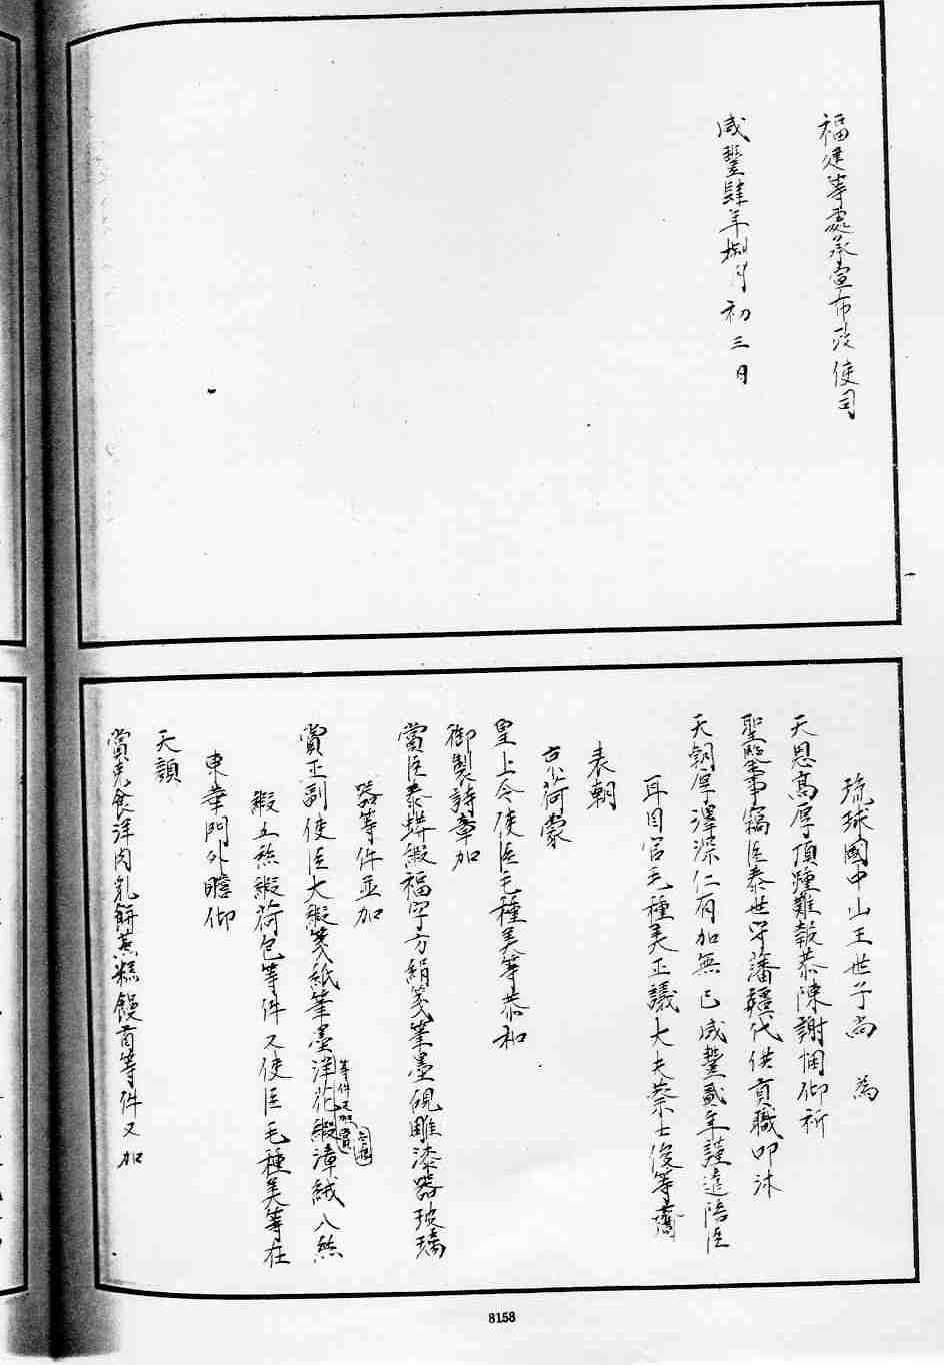 福建等處承宣布政使司
咸豐肆年捌月初三日
琉球國中山王世子尚 為
天恩高厚頂踵難報恭陳謝悃仰祈
聖鑒事竊臣泰世守藩疆代供貢職叩沐
天朝厚澤深仁有加無已咸豐貳年謹遣陪臣
耳目官毛種美正議大夫蔡士俊等齎
表朝
京荷蒙
皇上令使臣毛種美等恭和
御製詩章加
賞臣泰蟒緞福字方絹箋筆墨硯雕漆器玻璃
器等件並加
賞正副使臣大緞箋紙筆墨洋花緞漳絨八絲
等件又加賞
緞五絲緞荷包等件又使臣毛種美等在
東華門外瞻仰
天顏
賞克食洋肉乳餅蒸糕饅首等件又加
8158